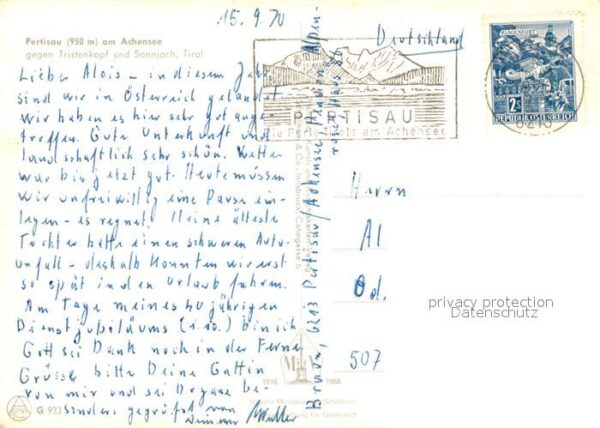 15.9.70
Partisau (950 m) am Achensee
gegen Tristenkopf und Sonnjoch, Tirol
Lieber Alois – in diesem Jahr
sind wir in Österreich gelandet
wir haben es hier sehr gut ange-
troffen. Gute Unterkunft und
landschaftlich sehr schön. Wetter
war bis jetzt gut. Heute müssen
wir unfreiwillig eine Pause ein-
legen – es regnet. Meine älteste
Tochter hatte einen schweren Auto-
unfall – deshalb konnten wir erst
so spät in den Urlaub fahren.
Am Tage meines 40 jährigen
Dienstjubiläums (1.10.) bin ich
Gott sei Dank noch in der Ferne
Grüsse bitte Deine Gattin
von mir und sei Du ganz be-
sonders gegrüßt von
Deinem
G 933
Deutschland
PERTISAU
am Achensee
6213
KLAGENFURT
2S
REPUBLIK ÖSTERREICH
6213 Pertisau/Achensee
Herrn
Al
Od.
507
privacy protection
Datenschutz
1918 1968